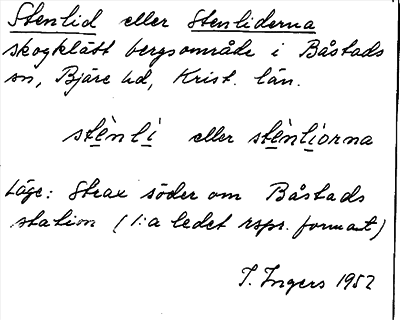 Stenlid eller Stenliderna
skogklätt bergsområde i Båstads
sn, Bjäre hd, Krist. län.
stènli eller stènliorna
Läge: Strax söder om Båstads
station (1:a ledet resps. formant)
I. Ingers 1952